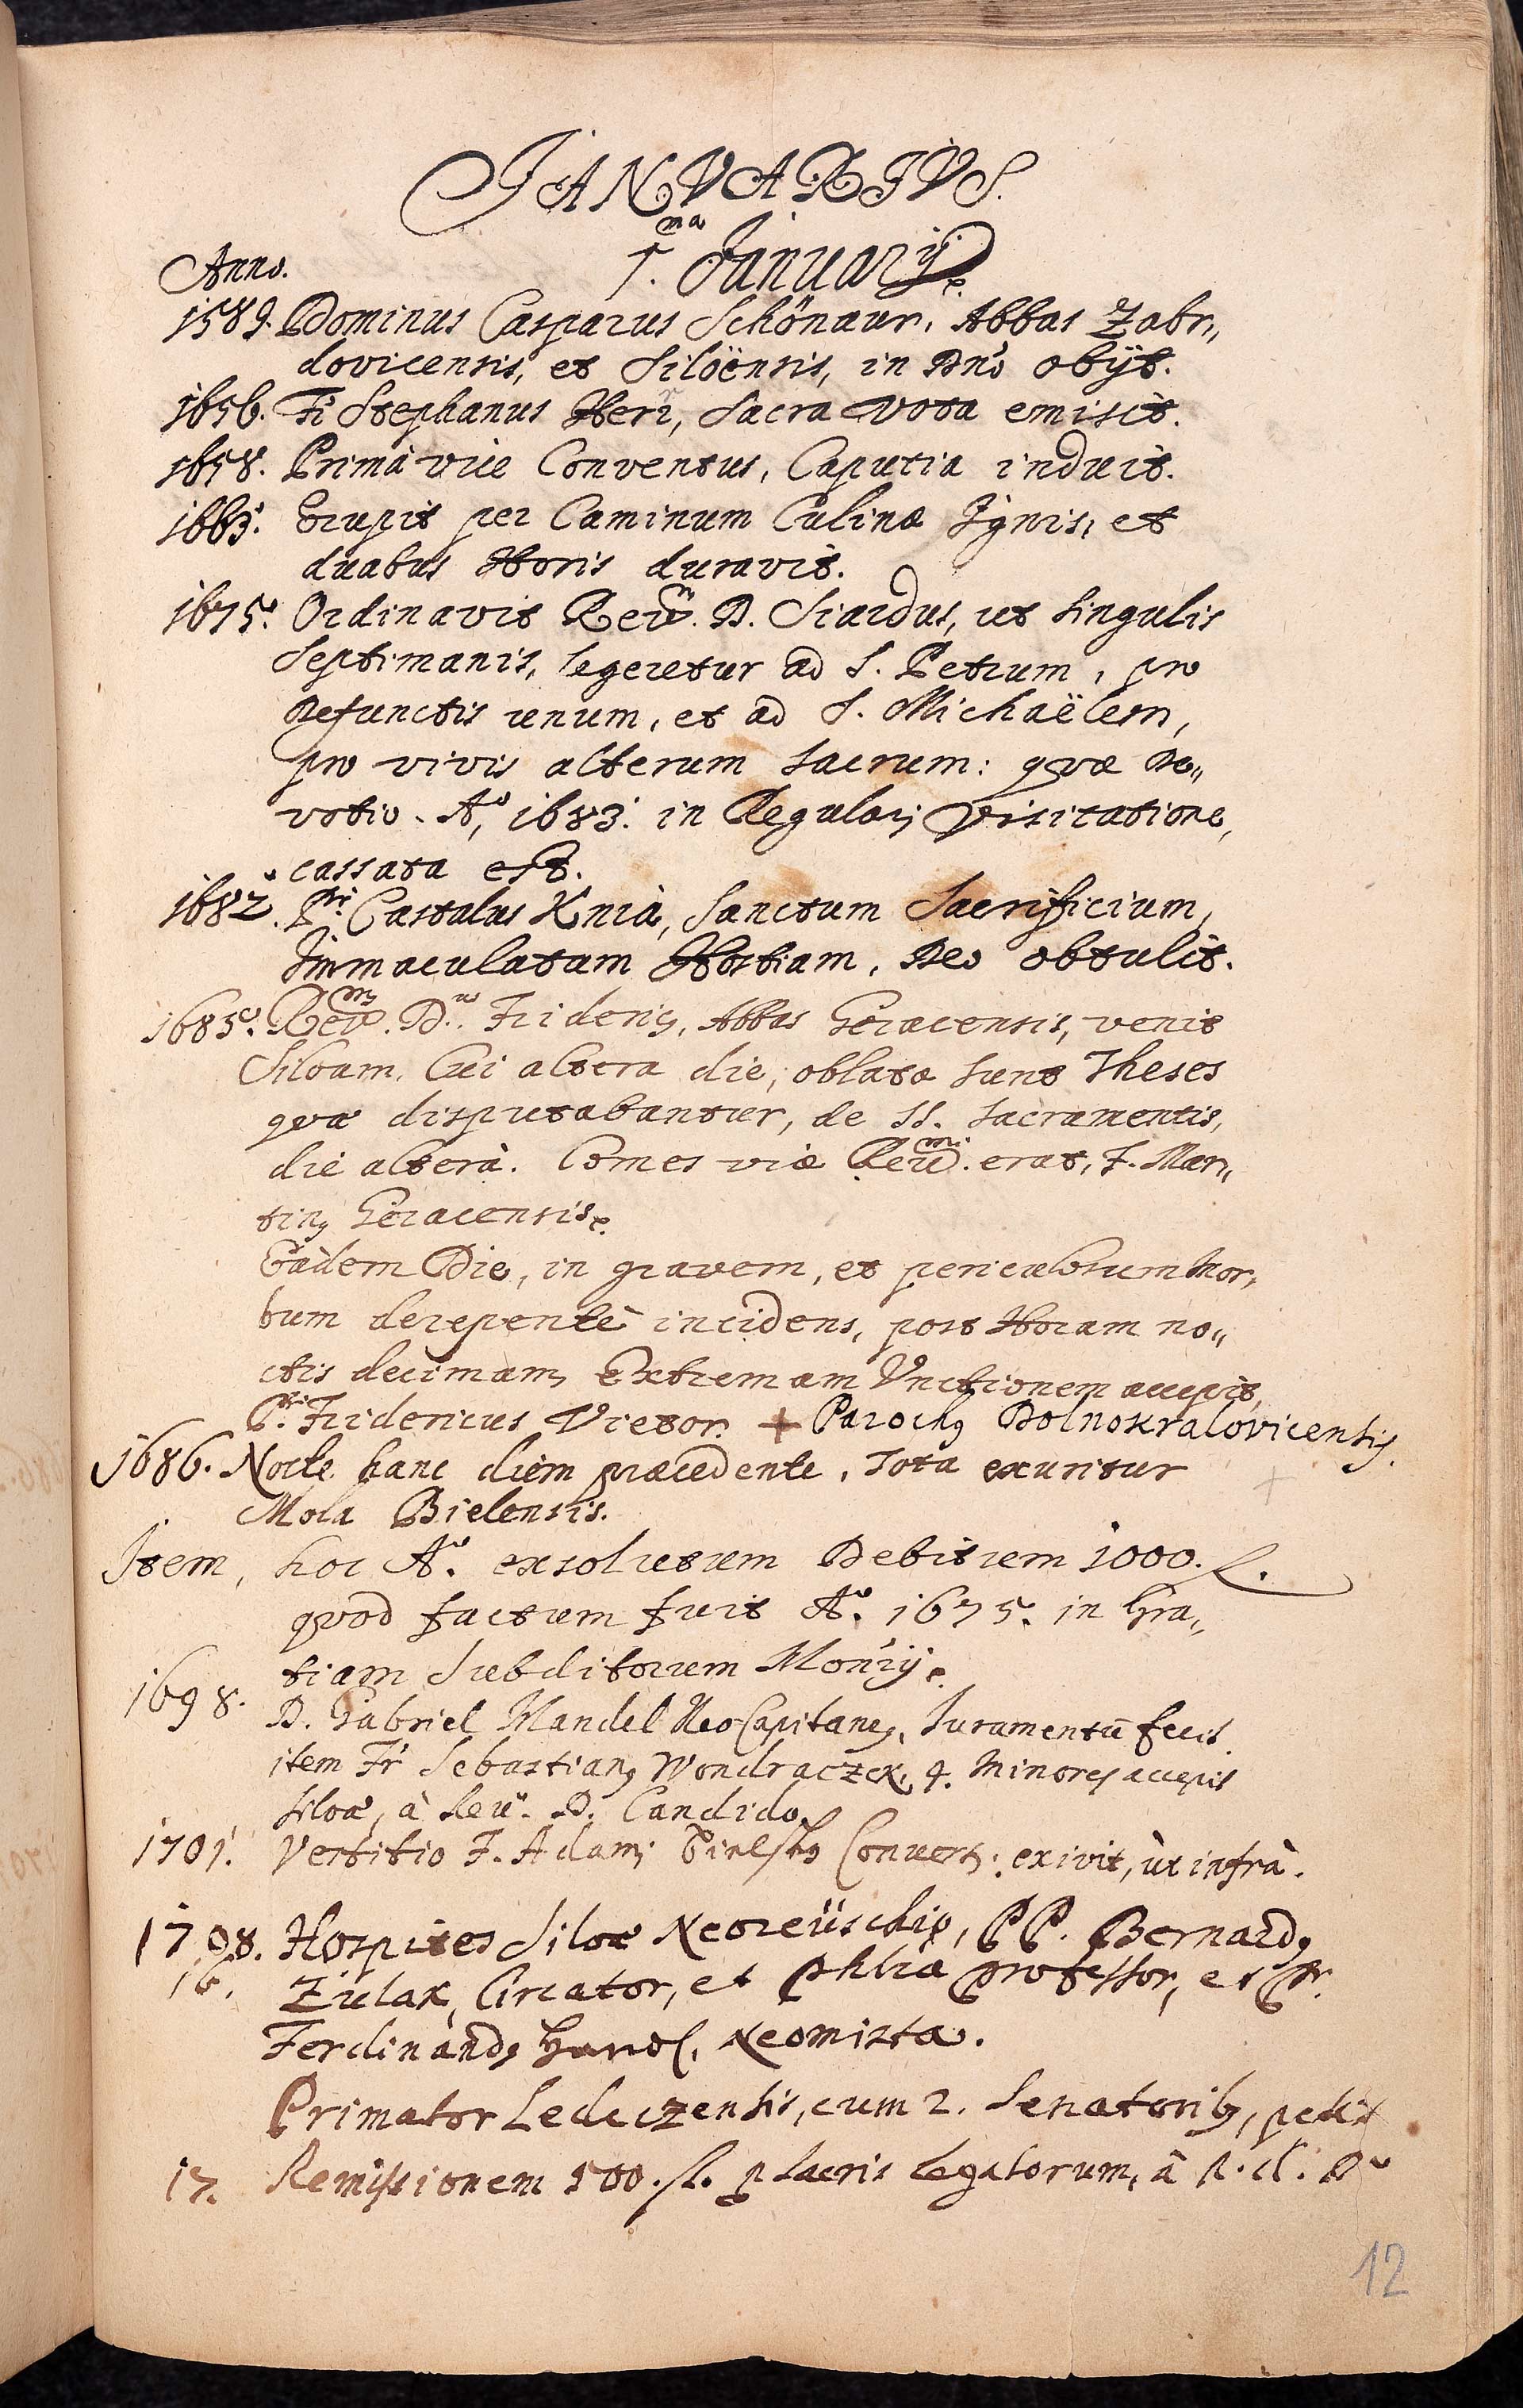 JANVARIVS.
1.ma Januarij.
Anno.
1589. Dominus Casparus Schönaur, Abbas Zabr„
dovicensis, et Siloënsis, in Dno obijt.
1656. Fr Stephanus Herz, Sacra vota emisit.
1658. Primâ vice Conventus, Caputia induit.
1663. Erupit per Caminum Culinæ Ignis, et
duabus Horis duravit.
1675. Ordinavit Revm. D. Siardus, ut singulis
Septimanis, legeretur ad S. Petrum, pro
Defunctis unum, et ad S. Michaëlem,
pro vivis alterum sacrum: qvæ De„
votio. Ao, 1683. in Regulari Visitatione,
cassata est.
1682. Pr. Castalus Knia, Sanctum Sacrificium,
Immaculatam Hostiam, Deo obtulit.
1685. Revm. D.us Frideri9, Abbas Geracensis, venit
Siloam. Cui altera die, oblatæ sunt Theses
qvæ disputabantur, de SS. Sacramentis,
die alterâ. Comes viæ Revmi. erat, F. Mar„
tin9 Geracensis.
Eâdem Die, in gravem, et periculosum Mor„
bum derepentè incidens, post Horam no„
ctis decimam, Extremam Unctionem accepit,
Pr. Fridericus Vietor. + Paroch9 Dolnokralovicensis.
1686. Nocte hanc diem præcedente, Tota exuritur
Mola Bielensis.
Item, hoc Ao. exsolutum Debitum 1000. fl.
qvod factum fuit Ao. 1675. in Gra„
tiam Subditorum Monrij.
1698. D. Gabriel Mandel Neo-Capitane9, Juramentū fecit.
item Fr Sebastian9 Wondraczek, 4. Minores accepit
Siloæ, à Rev. D. Candido.
1701. Vestitio F. Adami Convers. exivit, ùt infrà.
1708. Hospites Siloæ Neoreüschio, PP. Bernard9
16. Zulax, Circator, et Phliæ Professor, et Pr.
Ferdinand9 Handl, Neomista.
Primator Ledeczensis, cum 2. Senatorib9, petit
17. Remissionem 500. fl. p sacris legatorum, à R. d. Do
12